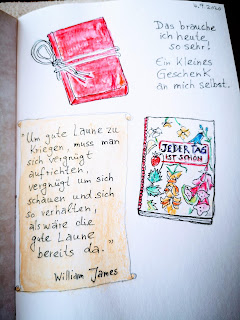 4.9.2020
Das brauche
ich heute
so sehr!
Ein kleines
Geschenk
an mich selbst.
"Um gute Laune zu
kriegen, muss man
sich vergnügt
aufrichten,
vergnügt um sich
schauen und sich
so verhalten,
als wäre die
gute Laune
bereits da."
William James
JEDER TAG
IST SCHÖN